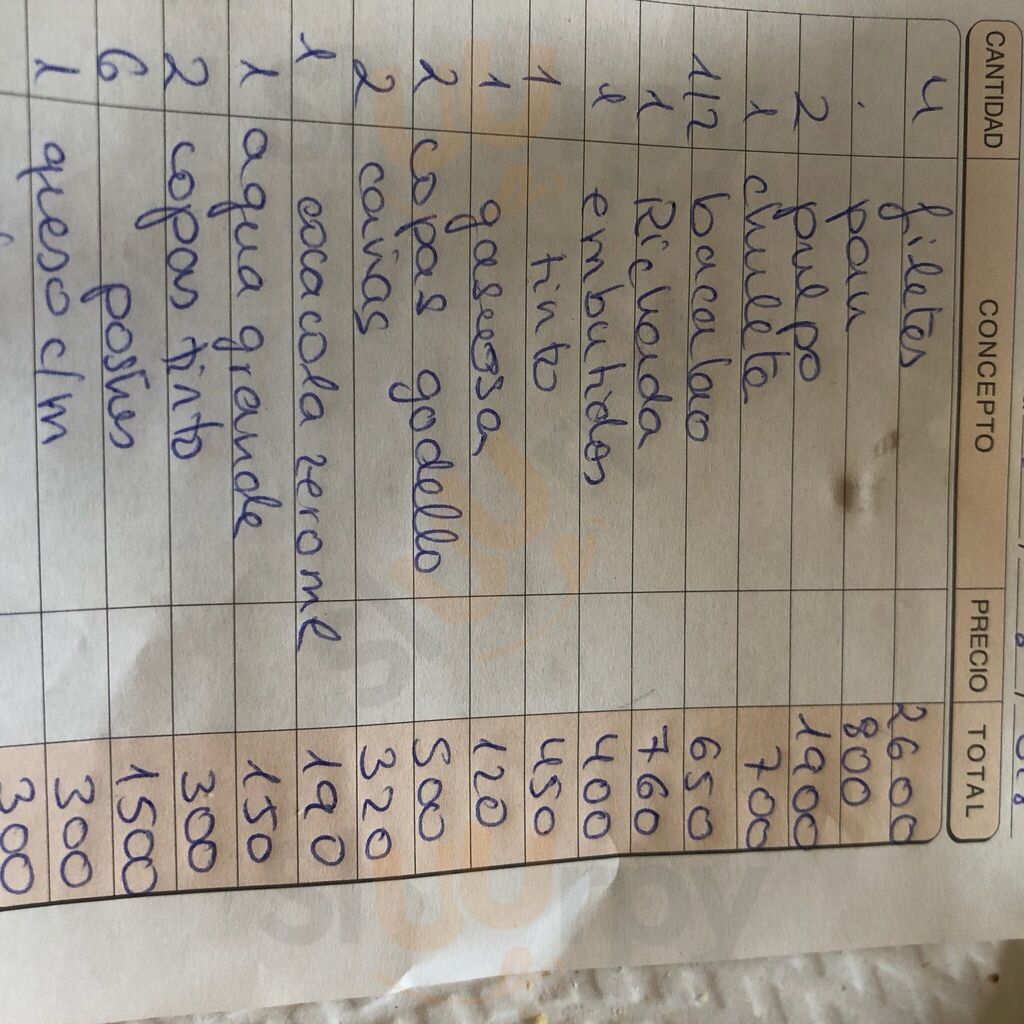 CANTIDAD CONCEPTO PRECIO TOTAL
4 filetes 2600
pan 800
2 pulpo 1900
1 chuleta 700
1/2 bacalao 650
1 Richada 760
1 embutidos 400
1 tinto 450
1 gaseosa 120
2 copas godello 500
2 cañas 320
1 cocacola zero 190
1 agua grande 150
2 copas tinto 300
6 postres 1500
1 queso c/m 300
300